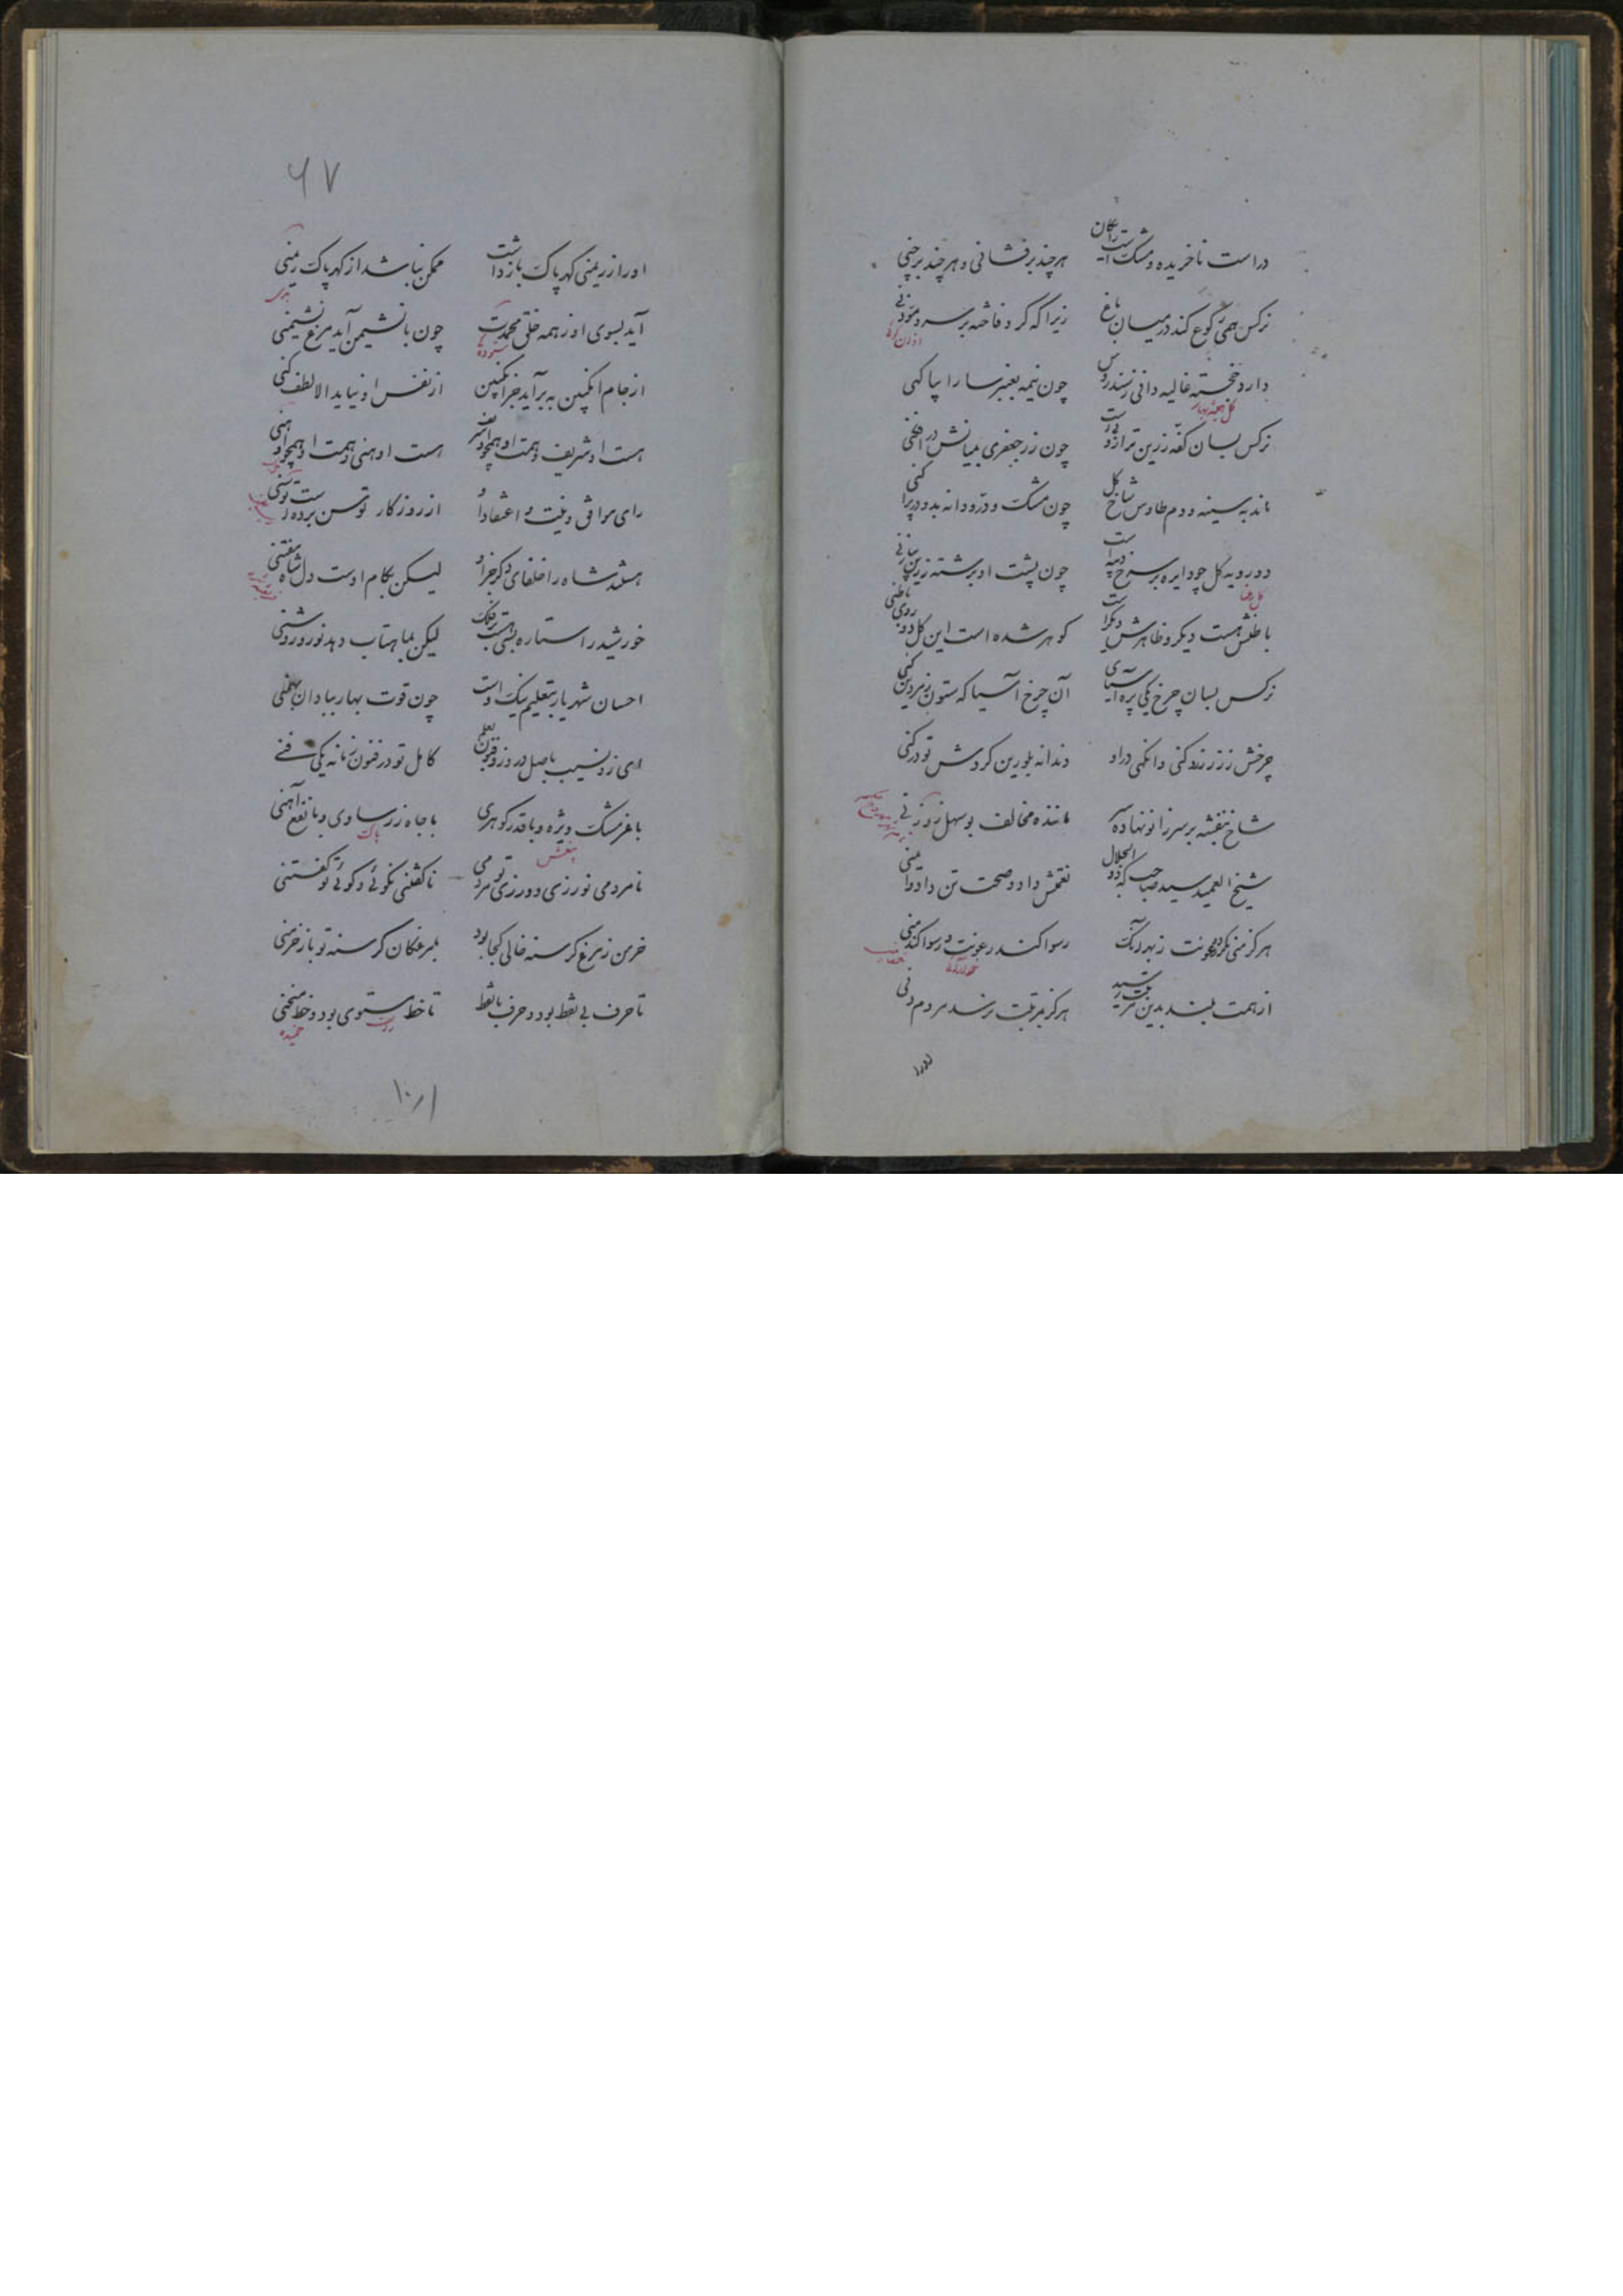 در است ناخریده و مشک است رایگان هر چند بر فشانی و هر چند بر چنی
نرکس همی رکوع کند در میان باغ زیرا که کرد فاخته بر سرو مؤذنی
دارد خجسته غالیه دانی ز سندروس چون نیمه بعنبر سارا بیاکنی
کل همیشه بهار
نرکس بسان کفه زرین ترازوی است چون زر جعفری بمیانش در افکنی
ماند به سینه و دم طاوس شاخ کل چون مشک و در و دانه بدو در پراکنی
دورویه کل چو دایره بر سرخ دیبه است چون پشت او برشته زرین بیاژنی
کل رعنا
باطنش هست دیکر و ظاهرش دیکر است کو هر شده است این کل دوروی باطنی
نرکس بسان چرخ یکی پره آسیای آن چرخ آسیا که ستون زمردین کنی
چرخش ز زر زرد کنی وانکهی در او دندانه بلورین کردش تو در کنی
شاخ بنفشه بر سر زانو نهاده سر ماننده مخالف بوسهل زوزنی
شیخ العمید سید صاحب که ذوالجلال نعمتش داد و صحت تن داد و ایمنی
هرکز منی نکرد و رعونت ز بهر آنک رسوا کند رعونت و رسوا کند منی
از همت بلند بدین مرتبت رسید هرکز بمرتبت نرسد مردم دنی
اورا
۶۷
اورا ز ریمنی کهر پاک باز داشت ممکن نباشد از کهر پاک ریمنی
آید بسوی او ز همه خلق محمدت چون با نشیمن آید مرغ نشیمنی
ستوده
از جام انکبین به برآید جز انکبین از نفس او نیاید الا لطف کنی
هست او شریف و همت او همچو او شریف هست او هنی و همت او همچو او هنی
رای موافق و نیت و اعتقاد او از روزکار توسن برده است توسنی
هستند شاه را خلفای دکر جز او لیکن بکام اوست دل شاه مقتنی
خورشید را ستاره بسی هست بر فلک لیکن بماهتاب دهد نور و روشنی
احسان شهریار بتعلیم نیک اوست چون قوت بهار بباد ان بهمنی
ای زد نسیب باصل در و ز فنون تعلم کامل تو در فنون زمانه یکی فنی
با غر مشک ویژه و با قدر کوهری با جاه زر ساوی و با نفع آهنی
پاک
نامردمی نورزی و ورزی تو مردمی ناکفتنی نکوئی و کوئی تو کفتنی
خرمن ز مرغ کرسنه خالی کجا بود بر مرغکان کرسنه تو باز خرمنی
تا حرف بی نقط بود و حرف با نقط تا خط مستوی بود و خط منحنی
خمیده